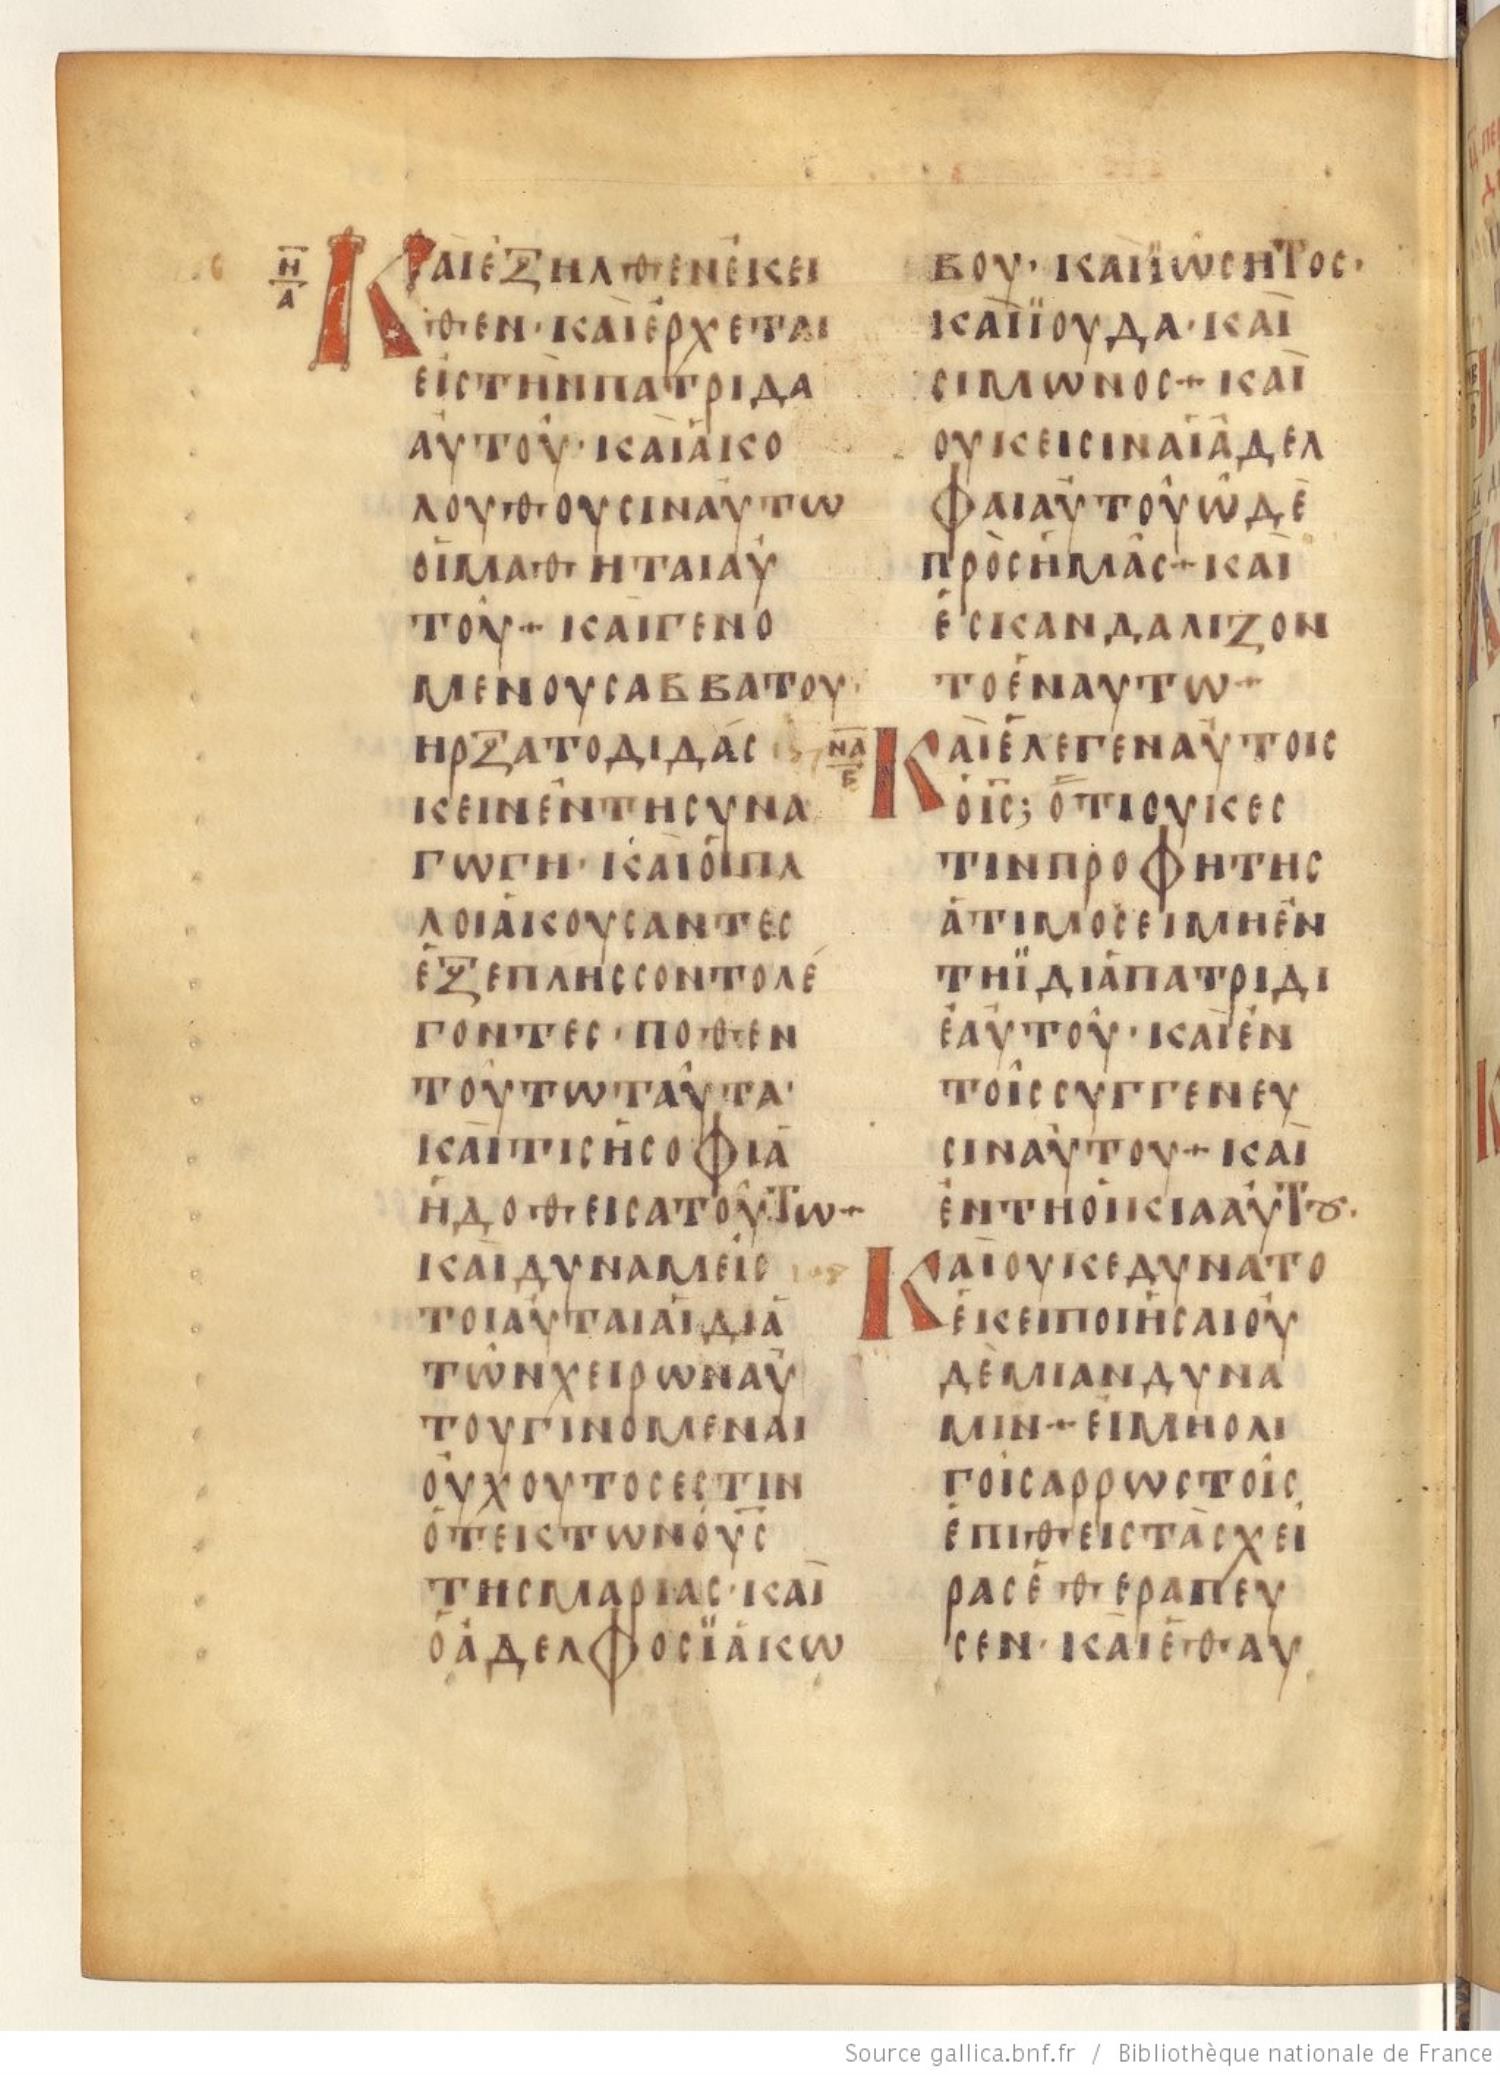 Η
Α
ΚΑΙΕΞΗΛΘΕΝΕΚΕΙ
ΘΕΝ·ΚΑΙΕΡΧΕΤΑΙ
ΕΙСΤΗΝΠΑΤΡΙΔΑ
ΑΥΤΟΥ·ΚΑΙΑΚΟ
ΛΟΥΘΟΥСΙΝΑΥΤΩ
ΟΙΜΑΘΗΤΑΙΑΥ
ΤΟΥ+ΚΑΙΓΕΝΟ
ΜΕΝΟΥСΑΒΒΑΤΟΥ·
ΗΡΞΑΤΟΔΙΔΑС
ΚΕΙΝΕΝΤΗСΥΝΑ
ΓΩΓΗ·ΚΑΙΟΙΠΛ
ΛΟΙΑΚΟΥСΑΝΤΕС
ΕΞΕΠΛΗССΟΝΤΟΛΕ
ΓΟΝΤΕС·ΠΟΘΕΝ
ΤΟΥΤΩΤΑΥΤΑ·
ΚΑΙΤΙСΗСΟΦΙΑ
ΗΔΟΘΕΙСΑΤΟΥΤΩ+
ΚΑΙΔΥΝΑΜΕΙС
ΤΟΙΑΥΤΑΙΑΙΔΙΑ
ΤΩΝΧΕΙΡΩΝΑΥ
ΤΟΥΓΙΝΟΜΕΝΑΙ
ΟΥΧΟΥΤΟСΕСΤΙΝ
ΟΤΕΚΤΩΝΟΥ̅С̅
ΤΗСΜΑΡΙΑС·ΚΑΙ
ΟΑΔΕΛΦΟСΪΑΚΩ
ΒΟΥ·ΚΑΙΪΩСΗΤΟС·
ΚΑΙΪΟΥΔΑ·ΚΑΙ
СΙΜΩΝΟС+ΚΑΙ
ΟΥΚΕΙСΙΝΑΙΑΔΕΛ
ΦΑΙΑΥΤΟΥΩΔΕ
ΠΡΟСΗΜΑС+ΚΑΙ
ΕСΚΑΝΔΑΛΙΖΟΝ
ΤΟΕΝΑΥΤΩ+
ΝΑ
Β
ΚΑΙΕΛΕΓΕΝΑΥΤΟΙС
ΟΙ̅С̅;ΟΤΙΟΥΚΕС
ΤΙΝΠΡΟΦΗΤΗС
ΑΤΙΜΟСΕΙΜΗΕΝ
ΤΗΪΔΙΑΠΑΤΡΙΔΙ
ΕΑΥΤΟΥ·ΚΑΙΕΝ
ΤΟΙССΥΓΓΕΝΕΥ
СΙΝΑΥΤΟΥ+ΚΑΙ
ΕΝΤΗΟΙΚΙΑΑΥΤȣ.
ΚΑΙΟΥΚΕΔΥΝΑΤΟ
ΕΚΕΙΠΟΙΗСΑΙΟΥ
ΔΕΜΙΑΝΔΥΝΑ
ΜΙΝ+ΕΙΜΗΟΛΙ
ΓΟΙСΑΡΡΩСΤΟΙС
ΕΠΙΘΕΙСΤΑСΧΕΙ
ΡΑСΕΘΕΡΑΠΕΥ
СΕΝ·ΚΑΙΕΘΑΥ
Source gallica.bnf.fr / Bibliothèque nationale de France